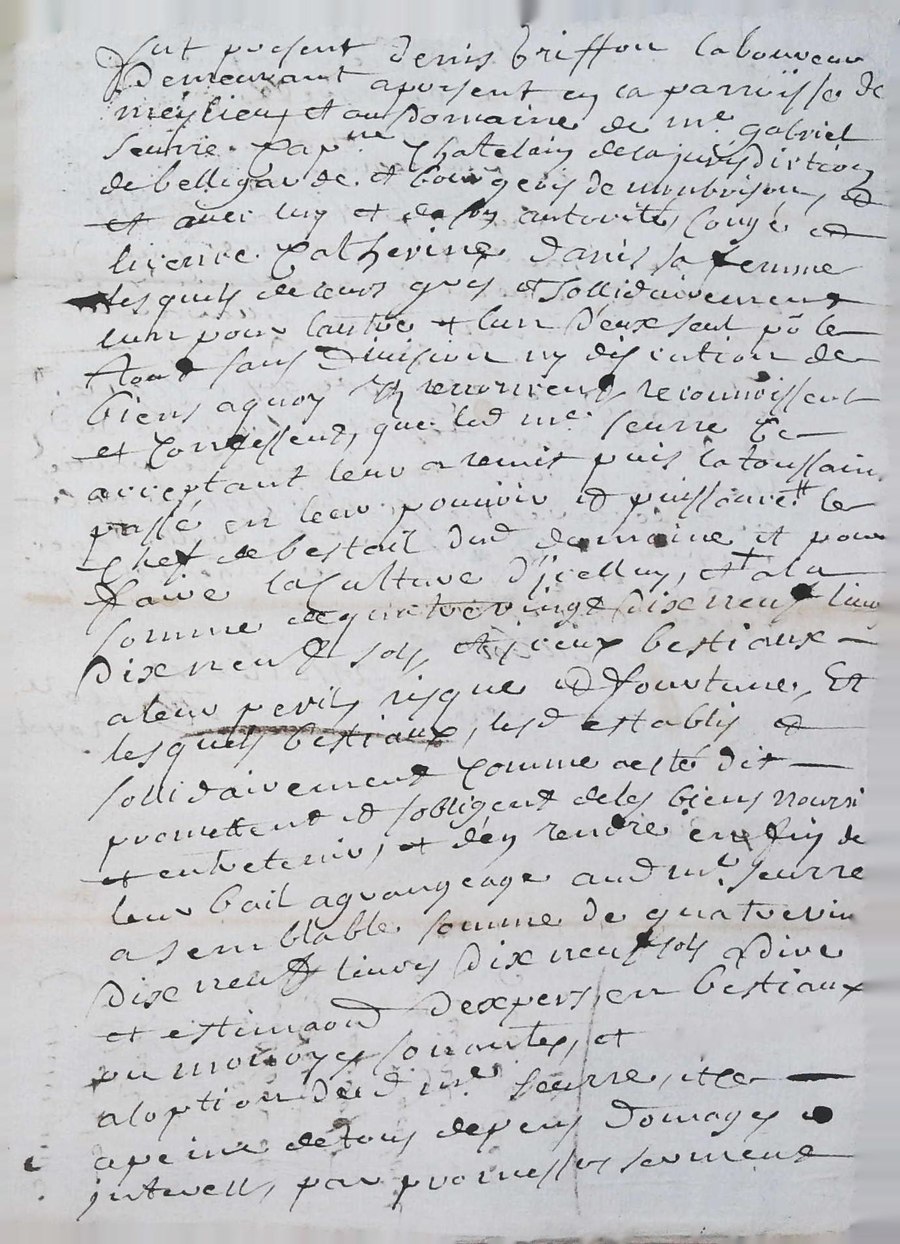 fut present denis briffon laboureur
Demeurant apresent en la parroisse de
meylieu, et au Domaine de me gabriel
seurre Cap.ne Chatelain de la jurisdiction
de bellegarde et bourgeois de monbrison, et
et avec luy et de son autorité, Congé et
licence Catherine danis sa femme
lesquels de leurs grés et sollidairement
lun pour lautre et lun d'eux seul po le
tout sans Division ny discution de
biens aquoy ils renoncent, reconnoissent
et Confessent, que led me seurre Ce
acceptant leur a remis puis la toussain
passé en leur pouvoir et puissance le
Chef de bestail dud domaine et pour
faire la Culture d'Icelluy, et a la
somme de quatrevingt Dix neuf livres
Dix neuf sols, et iceux bestiaux
a leur perils risque et fourtune, Et
lesquels bestiaux, lesd establis et
sollidairement Comme a esté dit
promettent et sobligent de les biens nourri
et entretenir, et d'en rendre en fin de
leur bail a grangeage aud me seurre
a semblable somme de quatrevin
Dix neuf livres Dix neuf sols a dire
et estimaon Dexpers, en bestiaux
ou monoyes sonantes, et
a loption dud me seurre, et ce
a peine de tous depens Domages et
interests, par promesses serment